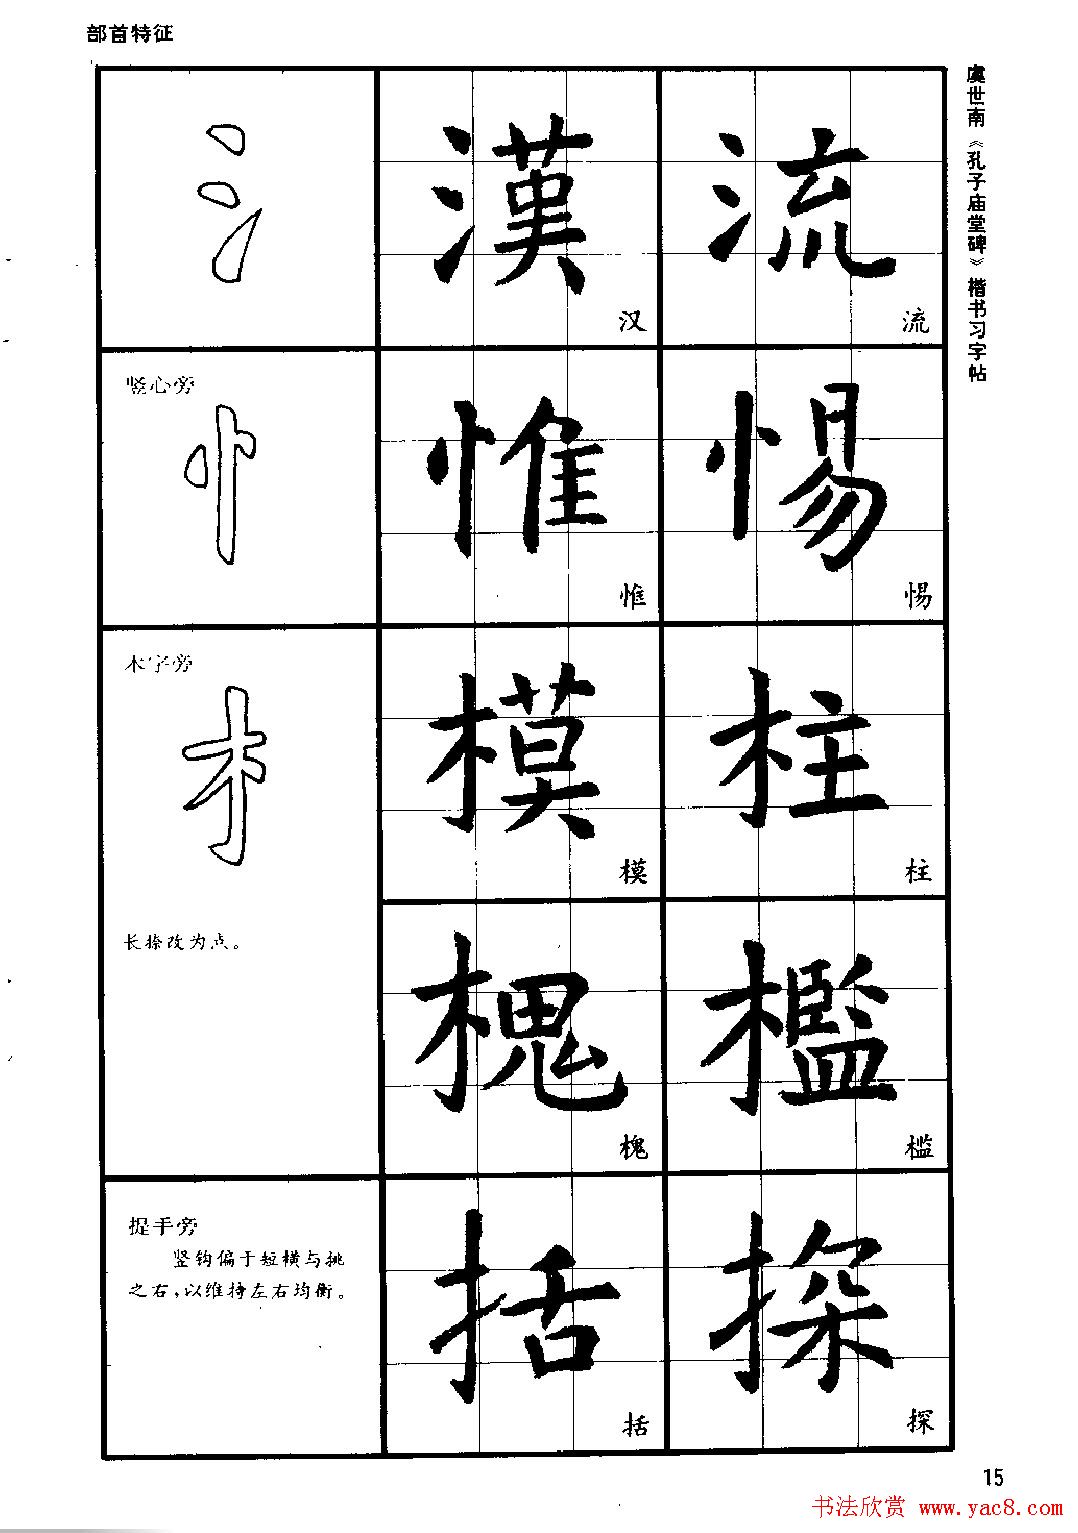 部首特征
虞世南《孔子庙堂碑》楷书习字帖
氵
漢
汉
流
流
竖心旁
忄
惟
惟
惕
惕
木字旁
木
長捺改为点。
模
模
柱
柱
槐
槐
檻
槛
提手旁
竖钩偏于短横与挑
之右，以维持左右均衡。
括
括
探
探
15
书法欣赏 www.yac8.com